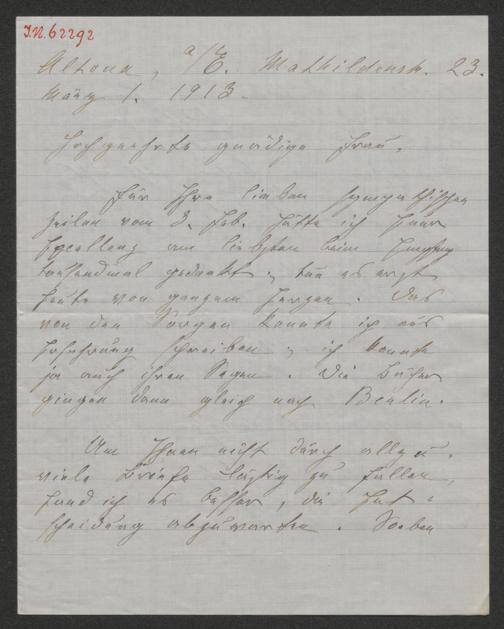 J.N. 62292
Altona, a/E. Mathildenstr. 23.
März 1. 1913.
Hochgeehrte gnädige Frau,
Für Ihre lieben sympathischen
Zeilen vom 3. Feb. hätte ich Euer
Excellenz am liebsten beim Empfang
tausendmal gedankt, tue es erst
heute von ganzem Herzen. Das
von den Sorgen konnte ich aus
Erfahrung schreiben, ich konnte
ja auch ihren Segen. Die Bücher
gingen dann gleich nach Berlin.
Um Ihnen nicht durch allzu
viele Briefe lästig zu fallen,
fand ich es besser, die Ent-
scheidung abzuwarten. Soeben